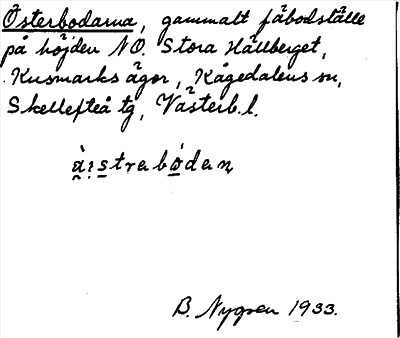 Österbodarna, gammalt fäbodställe
på höjden NO. Stora Hällberget,
Kusmarks ägor, Kågedalens sn,
Skellefteå tg, Västerb. l.
B. Nygren 1933.